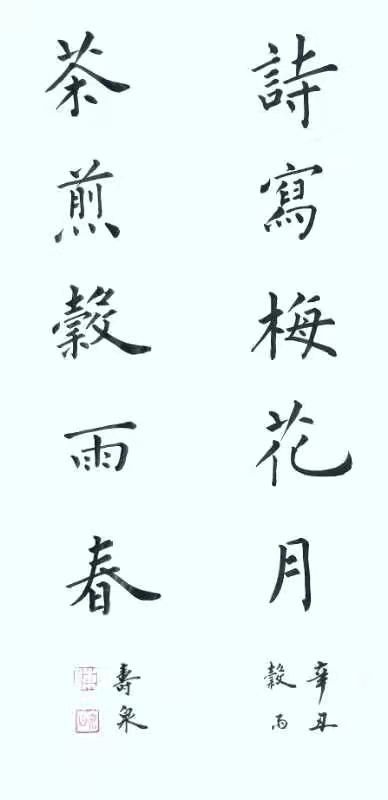 詩寫梅花月
茶煎縠雨春
辛丑
縠雨
壽泉